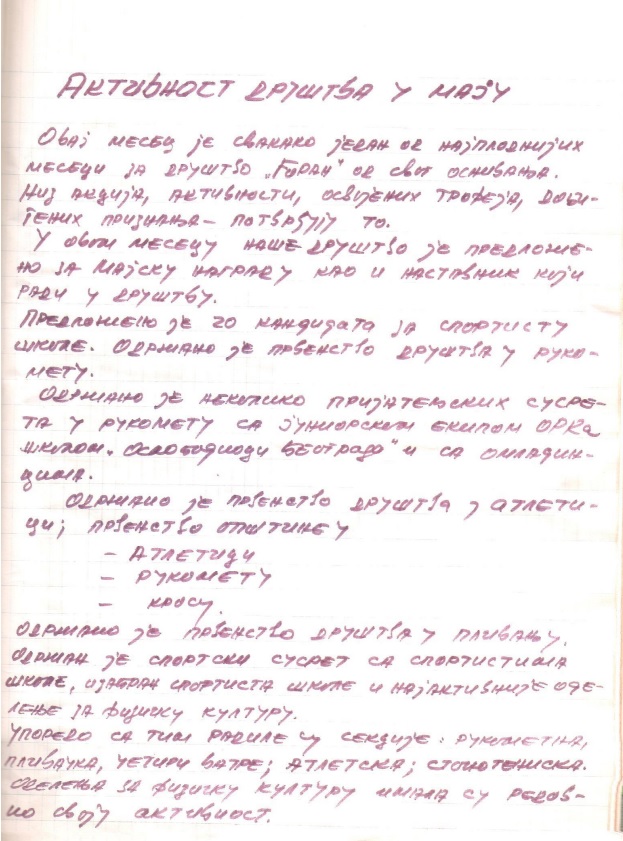 Активност друштва у мају
Овај месец је свакако један од најплоднијих
месеци за друштво „Горан" од свог оснивања.
Низ акција, активности, освојених трофеја, доби-
јених признања – потврђују то.
У овом месецу наше друштво је предложе-
но за Мајску награду као и наставник који
ради у друштву.
Предложено је 20 кандидата за спортисту
школе. Одржано је првенство друштва у руко-
мету.
Одржано је неколико пријатељских сусре-
та у рукомету са јуниорском екипом ОРКа
школом „Ослободиоци Београда" и са омладин-
цима.
Одржано је првенство друштва у атлети-
ци; првенство општине у
– Атлетици
– Рукомету
– Кросу.
Одржано је првенство друштва у пливању.
Одржан је спортски сусрет са спортистима
школе, изабран спортиста школе и најактивније оде-
лење за физичку културу.
Упоредо са тим радиле су секције: рукометна,
пливачка, четири ватре; атлетска; стонотениска.
Оделења за физичку културу имала су редов-
но своју активност.